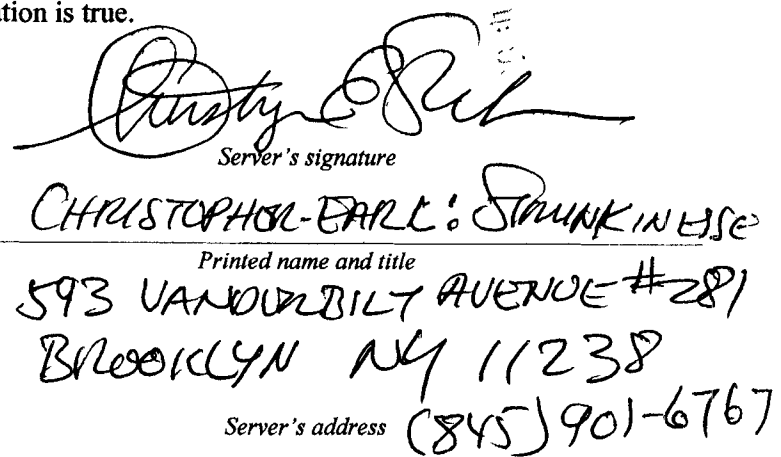 ation is true.
Christop E Stru
Server's signature
CHRISTOPHER-EARL: STRUNK IN ESSE
Printed name and title
593 VANDERBILT AVENUE #281
BROOKLYN NY 11238
Server's address (845) 901-6767